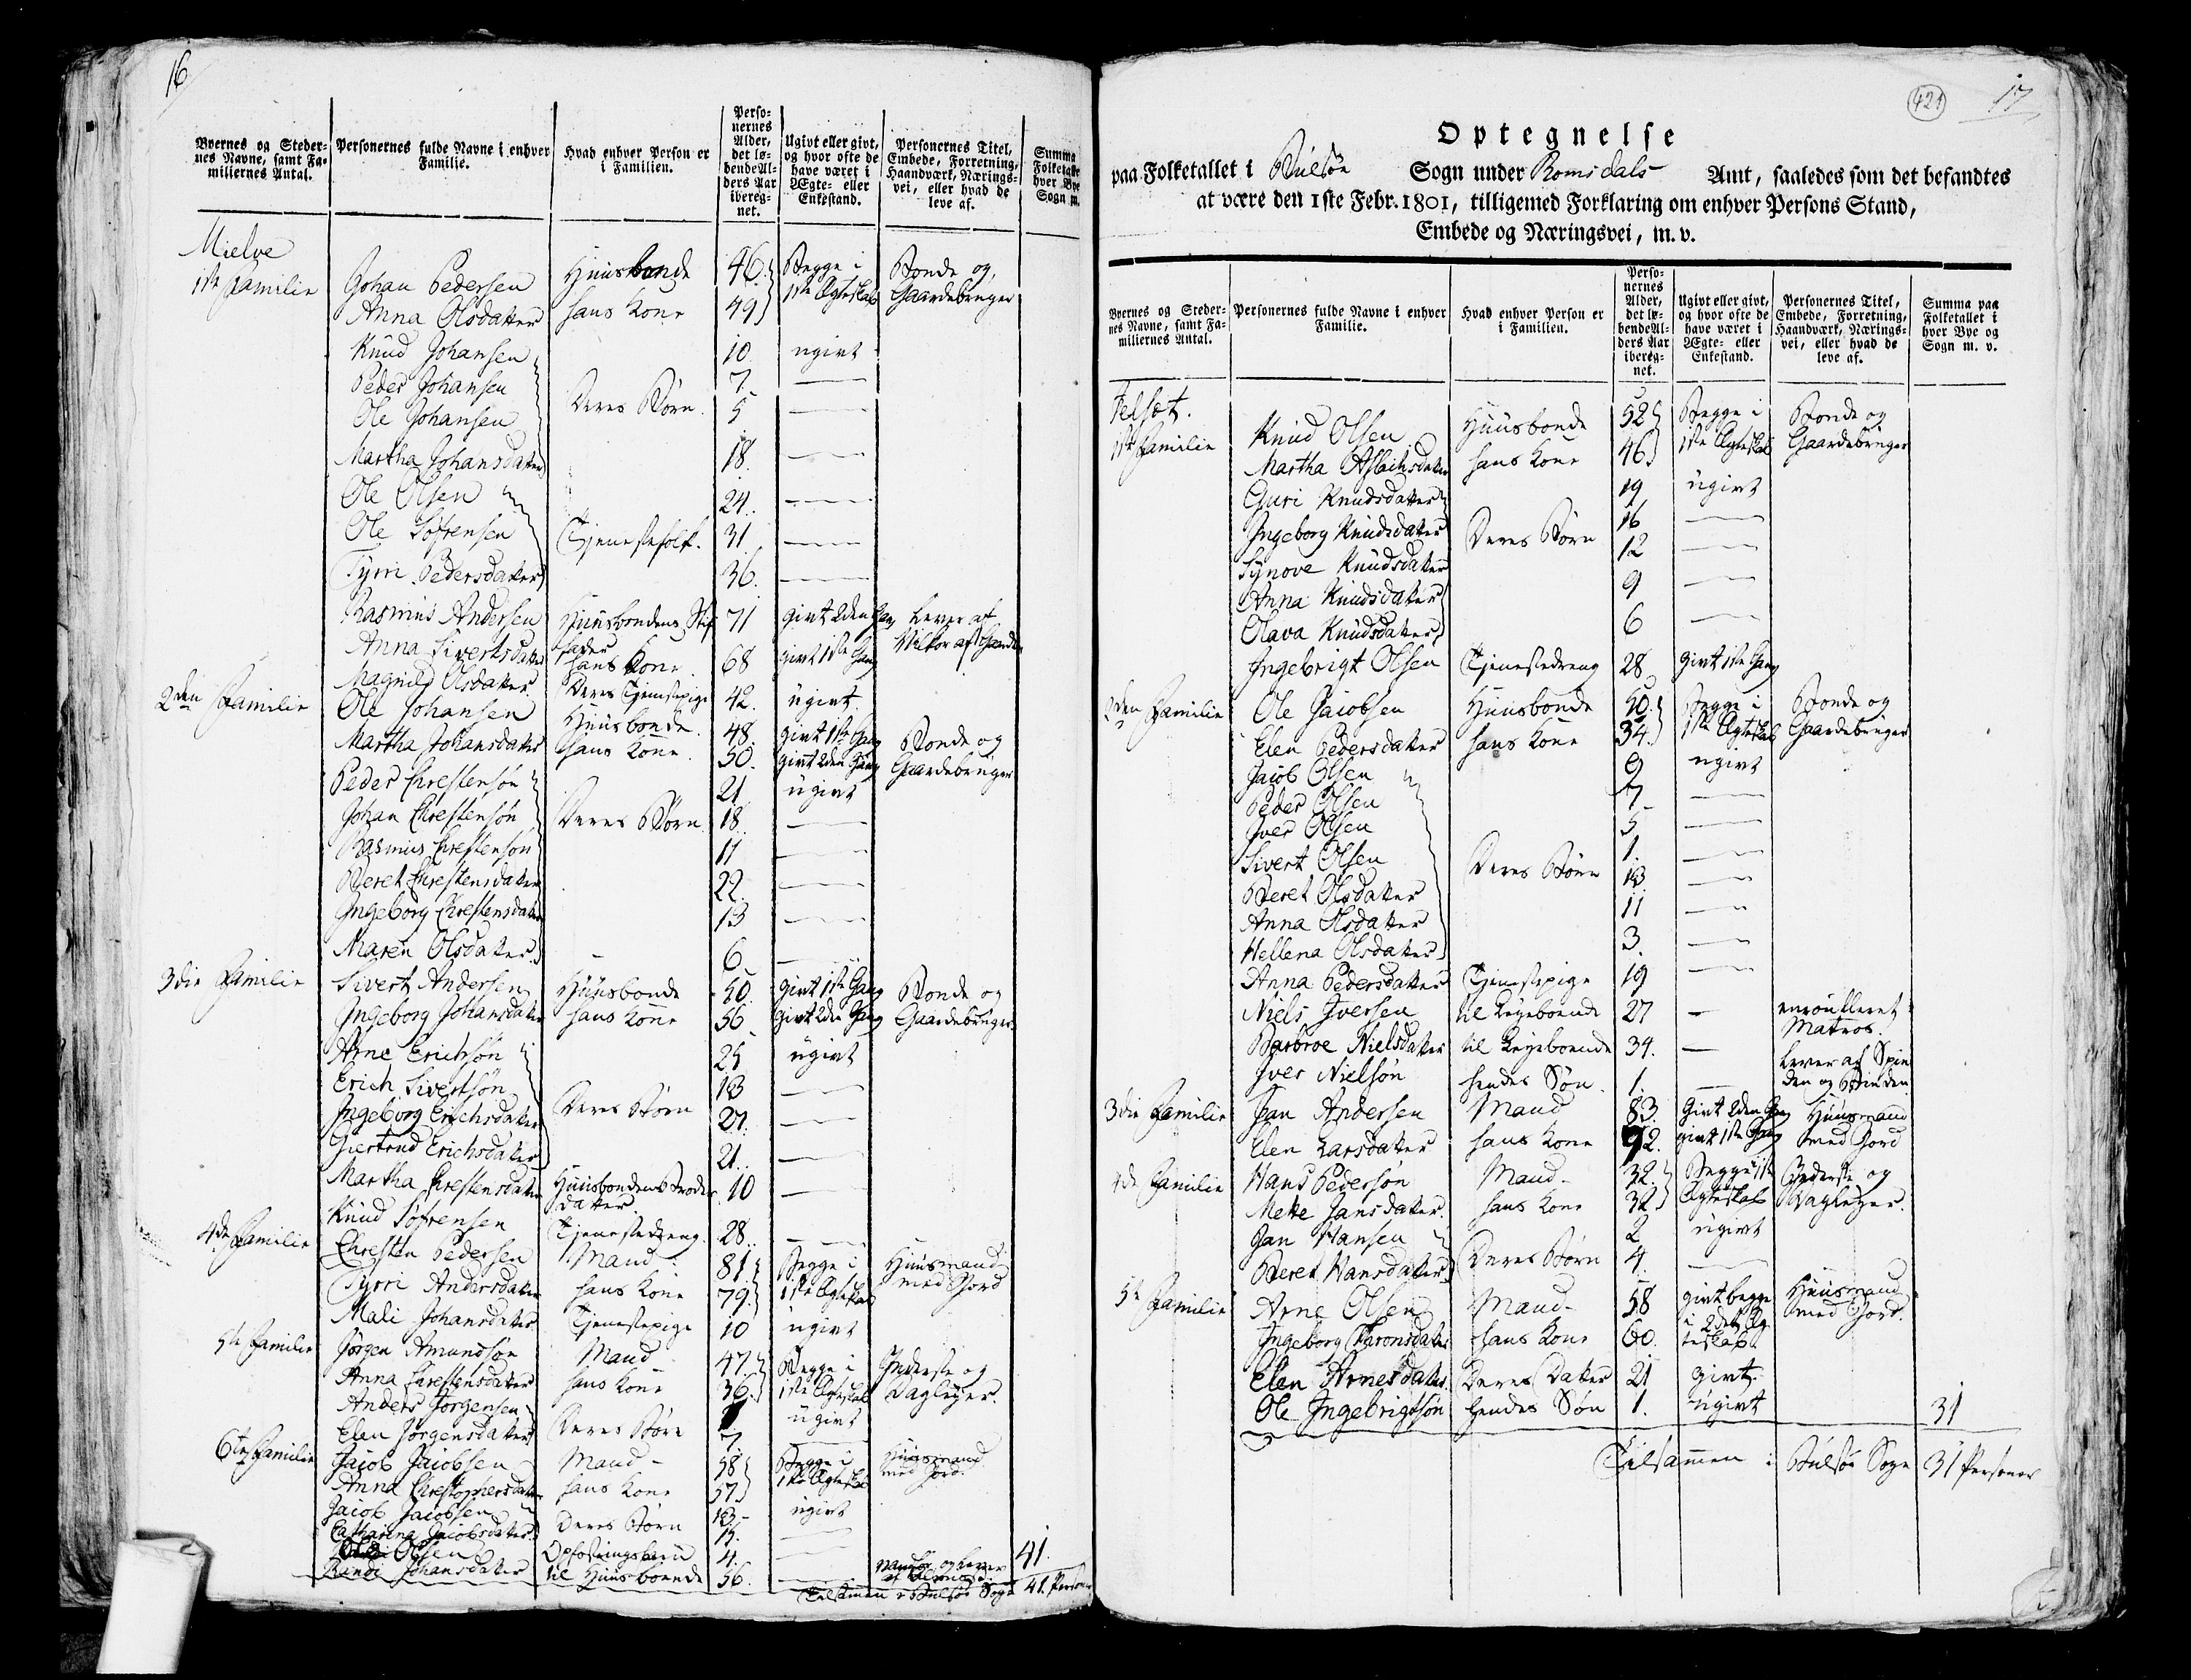 16
Byernes og Steder-
nes Navne, samt Fa-
miliernes Antal.
Personernes fulde Navne i enhver
Familie.
Hvad enhver Person er
i Familien.
Perso-
nernes
Alder,
det lø-
bende Al-
ders Aar
ibereg-
net.
Ugivt eller givt,
og hvor ofte de
have været i
Ægte- eller
Enkestand.
Personernes Titel,
Embede, Forretning,
Haandværk, Nærings-
vei, eller hvad de
leve af.
Summa
Folketalle
hver Bye
Sogn m.
Mielve
1ste Familie Johan Pedersen Huusbonde 46. Begge i Bonde og
Anna Olsdatter hans Kone 49 1ste Ægteskab Gaardebruger
Knud Johansen 10. ugivt
Peder Johansen 7. —
Ole Johansen Deres Børn. 5 —
Martha Johansdatter 18. —
Ole Olsen 24. —
Ole Søfrensen Tjenestefolk. 31 —
Tyrri Pedersdatter 36. —
Rasmus Andersen Huusbondens Stif 71 givt 2den Gang Lever af
fader
Anna Sivertsdatter hans Kone 68 givt 1ste Gang Vilkor af Gaarden
Magnild Olsdatter Deres Tjenestepige 42. ugivt.
2den Familie Ole Johansen Huusbonde 48. givt 1ste Gang Bonde og
Martha Johansdatter hans Kone. 50. givt 2den Gang Gaardebruger
Peder Chrestensøn 21 ugivt
Johan Chrestensøn Deres Børn. 18. —
Rasmus Chrestensøn 11 —
Beret Chrestensdatter 22 —
Ingeborg Chrestensdatter 13 —
Maren Olsdatter. 6 —
3die Familie Sivert Andersen Huusbonde 50. givt 1ste Gang Bonde og
Ingeborg Johansdatter hans Kone 56 givt 2den Gang Gaardebruger.
Arne Erichsøn 25 ugivt
Erich Sivertsøn 13 —
Ingeborg Erichsdatter Deres Børn 27. —
Giertrud Erichsdatter 21. —
Martha Chrestensdatter Huusbondens Broder 10 —
datter
Knud Søfrensen Tjenestedreng. 28. —
4de Familie Chresten Pedersen Mand 81 Begge i Huusmand
Tyrri Andersdatter hans Kone 79. 1ste Ægteskab med Jord
Mali Johansdatter Tjenestepige 10 ugivt
5te Familie Jørgen Amundsøn Mand 47. Begge i Inderste og
Anna Chrestensdatter hans Kone 36. 1ste Ægteskab Dagleyer.
Anders Jørgensen ugivt
Elen Jørgensdatter Deres Børn 7. —
6te Familie Jacob Jacobsen Mand 58 Begge i Huusmand
Anna Christophersdatter hans Kone 57 1ste Ægteskab med Jord.
Jacob Jacobsen 13. ugivt
Catharina Jacobsdatter Deres Børn 15. —
Olsen Opfostringsbarn 4. —
Randi Johansdatter til Huusboende 56. — 41.
Tilsammen i Bulsøe Sogn 41. Personer
421
17
Optegnelse
paa Folketallet i Bulsøe Sogn under Romsdals Amt, saaledes som det befandtes
at være den 1ste Febr. 1801, tilligemed Forklaring om enhver Persons Stand,
Embede og Næringsvei, m. v.
Byernes og Steder-
nes Navne, samt Fa-
miliernes Antal.
Personernes fulde Navne i enhver
Familie.
Hvad enhver Person er
i Familien.
Perso-
nernes
Alder,
det lø-
bende Al-
ders Aar
ibereg-
net.
Ugivt eller givt,
og hvor ofte de
have været i
Ægte- eller
Enkestand.
Personernes Titel,
Embede, Forretning,
Haandværk, Nærings-
vei, eller hvad de
leve af.
Summa paa
Folketallet i
hver Bye og
Sogn m. v.
Felsæt.
1ste Familie Knud Olsen Huusbonde 52 Begge i Bonde og
Martha Aslachsdatter hans Kone 46. 1ste Ægteskab Gaardebruger
Guri Knudsdatter 19 ugivt
Ingeborg Knudsdatter Deres Børn 16 —
Synove Knudsdatter 12 —
Anna Knudsdatter 9 —
Olava Knudsdatter 6 —
Ingebrigt Olsen Tjenestedreng 28 givt 1ste Gang
2den Familie Ole Jacobsen Huusbonde 50. Begge i Bonde og
Elen Pedersdatter hans Kone 34. 1ste Ægteskab Gaardebruger
Jacob Olsen 9 ugivt
Peder Olsen 7 —
Iver Olsen 5 —
Sivert Olsen Deres Børn 1. —
Beret Olsdatter 13 —
Anna Olsdatter 11 —
Hellena Olsdatter 3. —
Anna Pedersdatter Tjenestepige 19 —
Niels Iversen til Leyeboende 27 — enroulleret
Matros.
Barbroe Nielsdatter til Leyeboende 34. — Lever af Spin
Iver Nielsøn hendes Søn. 1. — den og Binden
3die Familie Jan Andersen Mand 83. Givt 2den Gang Huusmand
Elen Larsdatter hans Kone 92. givt 1ste Gang med Jord
4de Familie Hans Pedersøn Mand 32. Begge i 1ste Inderste og
Mette Jansdatter. hans Kone 32 Ægteskab Dagleyer.
Jan Hansen 2 ugivt
Beret Hansdatter Deres Børn 4. —
5te Familie Arne Olsen Mand 58 givt begge Huusmand
Ingeborg Aronsdatter hans Kone 60. i 2det Æg med Jord.
teskab.
Elen Arnesdatter Deres Datter 21 givt.
Ole Ingebrigtsøn hendes Søn 1. ugivt 31
Tilsammen i Bulsøe Sogn 31 Personer